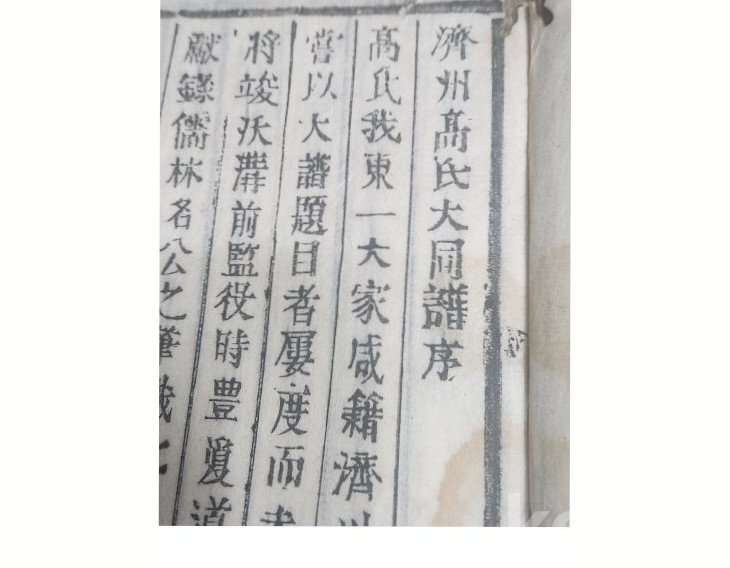 濟州髙氏大同譜序
髙氏我東一大家咸籍濟州
嘗以大譜題目者屢度而未
將竣沃溝前監役時豊夏道
獻錄儒林名公之筆幾